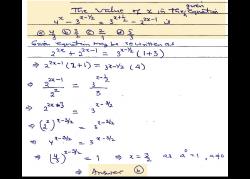 The value of x in the given equation
4^x − 3^(x−1/2) = 3^(x+1/2) − 2^(2x−1) is
(a) 4/3 (b) 3/2 (c) 2/1 (d) 5/3
Given equation may be rewritten as
2^(2x) + 2^(2x−1) = 3^(x−1/2) (1+3)
⇒ 2^(2x−1) (2+1) = 3^(x−1/2) (4)
⇒ 2^(2x−1) / 2^2 = 3^(x−1/2) / 3
⇒ 2^(2x−3) = 3^(x−3/2)
⇒ (2^2)^(x−3/2) = 3^(x−3/2)
⇒ 4^(x−3/2) = 3^(x−3/2)
⇒ (4/3)^(x−3/2) = 1 ⇒ x = 3/2 as a^0 = 1, a≠0
⇒ Answer (b)